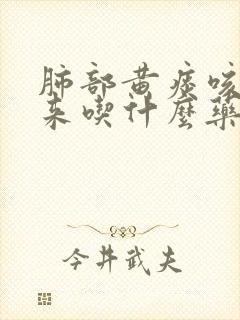 肺部黄痰咳
来喫什麼藥
今井武夫